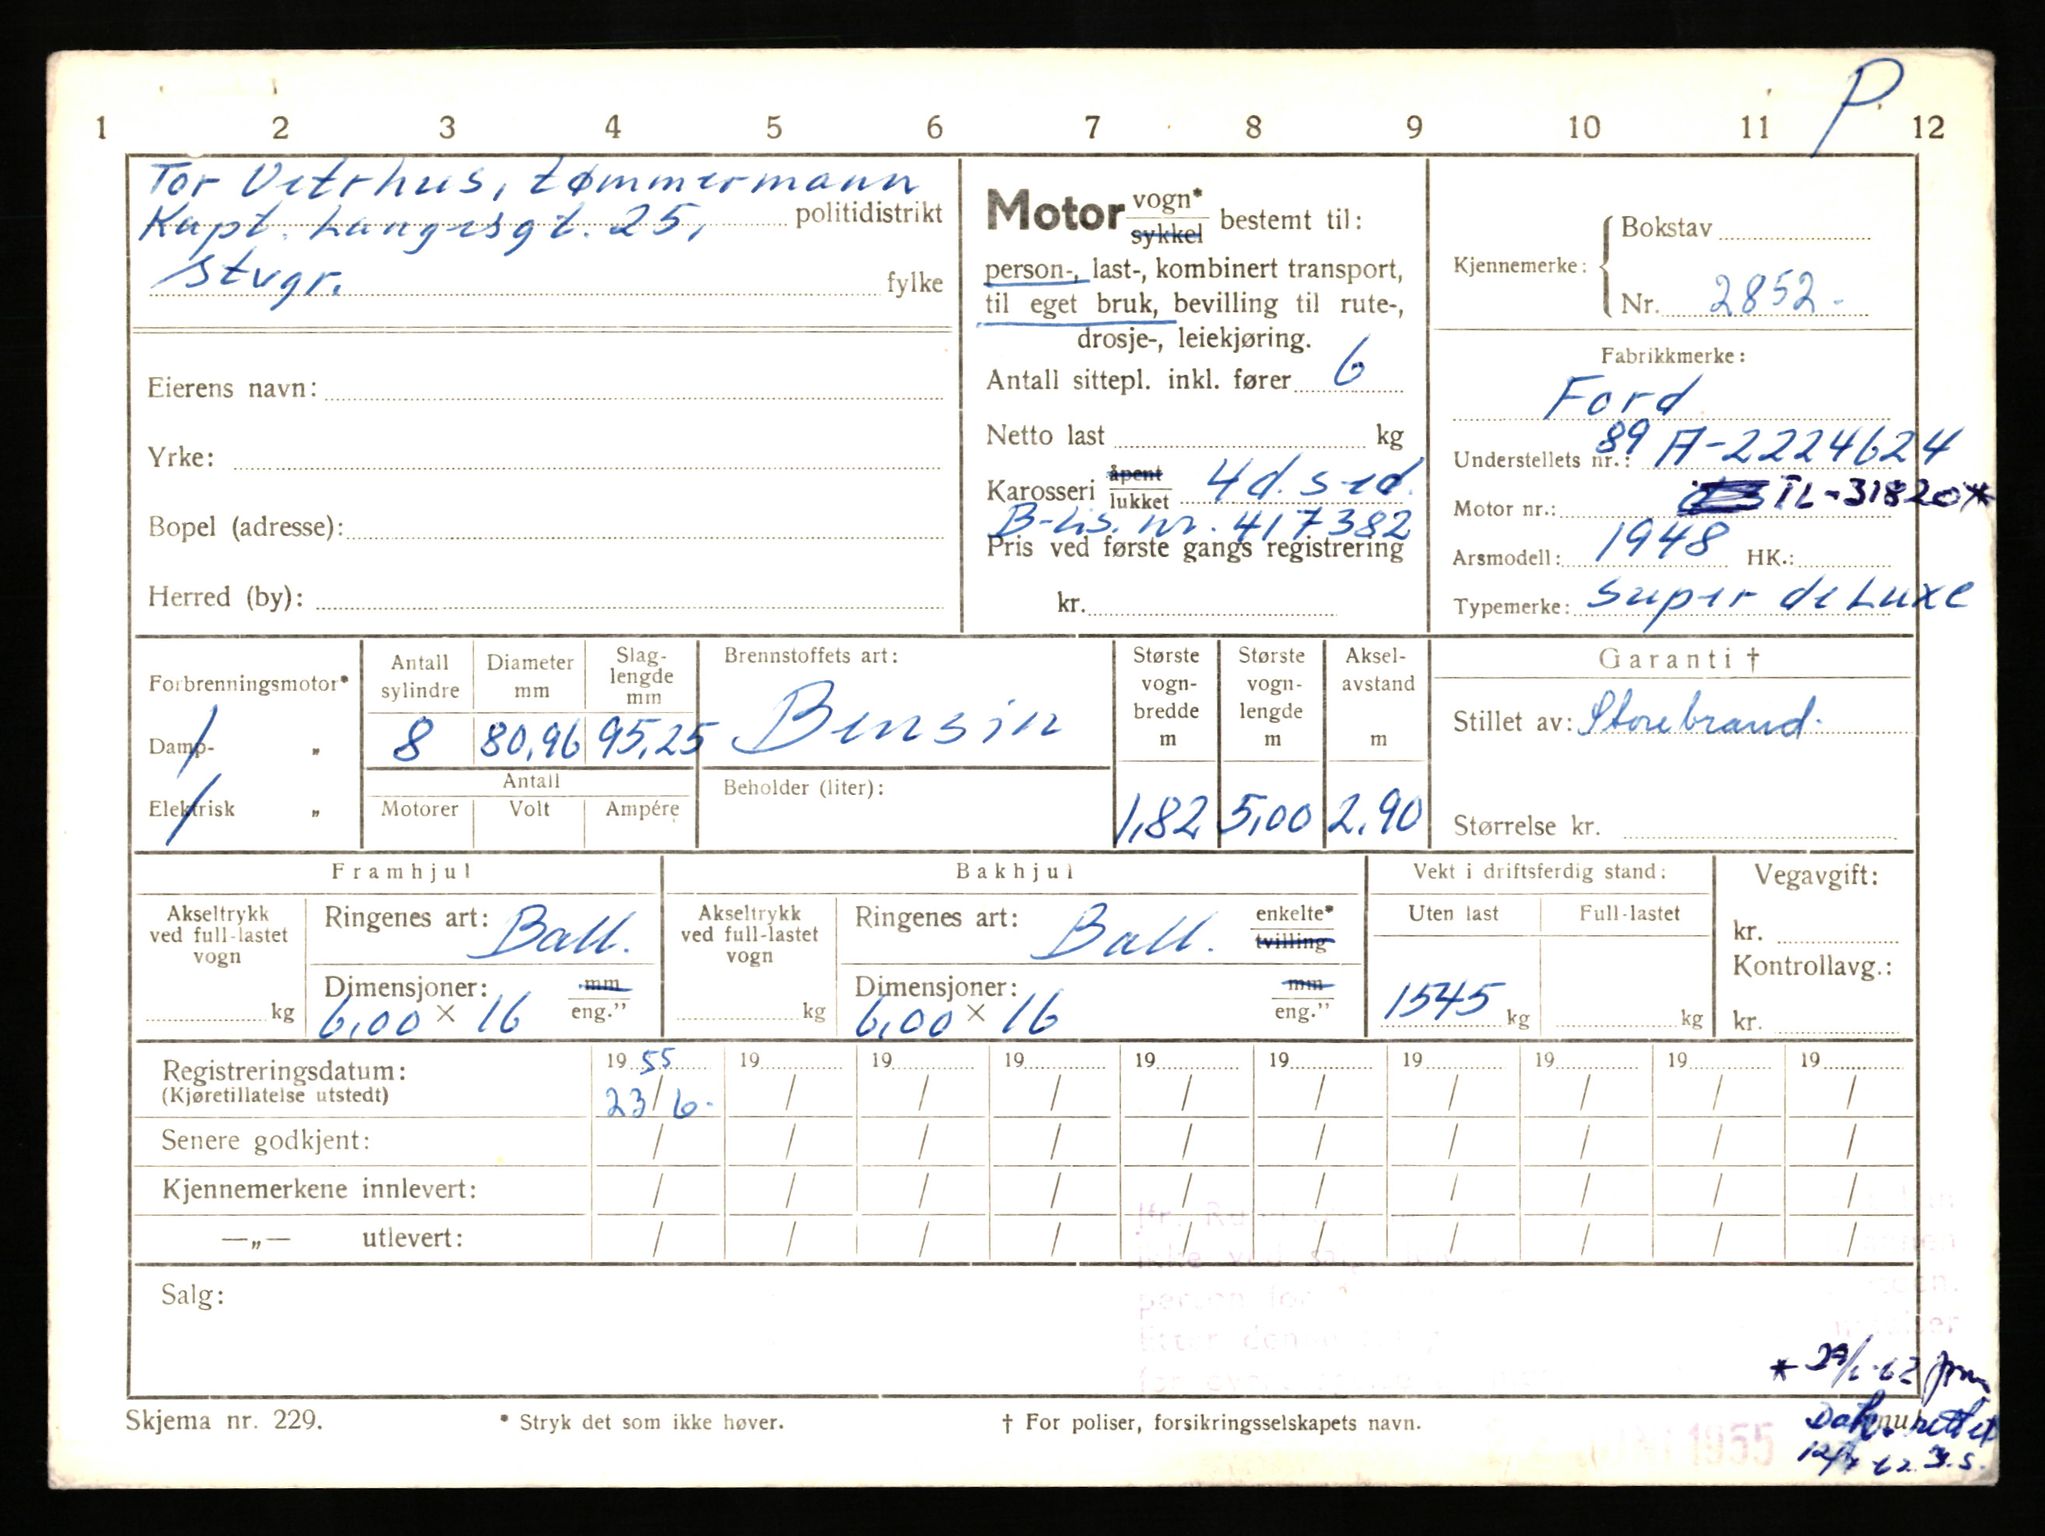 P
1 2 3 4 5 6 7 8 9 10 11 12
Tor Vetrhus, tømmermann
Kapt. Langesgt. 25, politidistrikt
Stvgr. fylke
Eierens navn:
Yrke:
Bopel (adresse):
Herred (by):
Motor vogn* sykkel bestemt til:
person-, last-, kombinert transport,
til eget bruk, bevilling til rute-,
drosje-, leiekjøring.
Antall sittepl. inkl. fører 6
Netto last kg
Karosseri åpent lukket 4d. sed.
B-lis. nr. 417382
Pris ved første gangs registrering
kr.
Kjennemerke: Bokstav
Nr. 2852-
Fabrikkmerke:
Ford
Understellets nr.: 89 A-2224624
Motor nr.: TL-31820*
Årsmodell: 1948 HK.:
Typemerke: Super de Luxe
Forbrenningsmotor*
Damp- „
Elektrisk „
Antall sylindre 8
Diameter mm 80,96
Slag-lengde mm 95,25
Antall
Motorer Volt Ampére
Brennstoffets art:
Bensin
Beholder (liter):
Største vogn-bredde m 1,82
Største vogn-lengde m 5,00
Aksel-avstand m 2,90
Garanti †
Stillet av: Storebrand.
Størrelse kr.
Framhjul
Akseltrykk ved full-lastet vogn
kg
Ringenes art: Ball.
Dimensjoner: mm eng.”
6,00 × 16
Bakhjul
Akseltrykk ved full-lastet vogn
kg
Ringenes art: Ball. enkelte* tvilling
Dimensjoner: mm eng.”
6,00 × 16
Vekt i driftsferdig stand:
Uten last Full-lastet
1545 kg kg
Vegavgift:
kr.
Kontrollavg.:
kr.
Registreringsdatum: 19 55 19 19 19 19 19 19 19 19 19
(Kjøretillatelse utstedt) 23/6- / / / / / / / / /
Senere godkjent: / / / / / / / / / /
Kjennemerkene innlevert: / / / / / / / / / /
—„— utlevert: / / / / / / / / / /
Salg:
* 29/1-62
Skjema nr. 229. * Stryk det som ikke høver. † For poliser, forsikringsselskapets navn.
1955